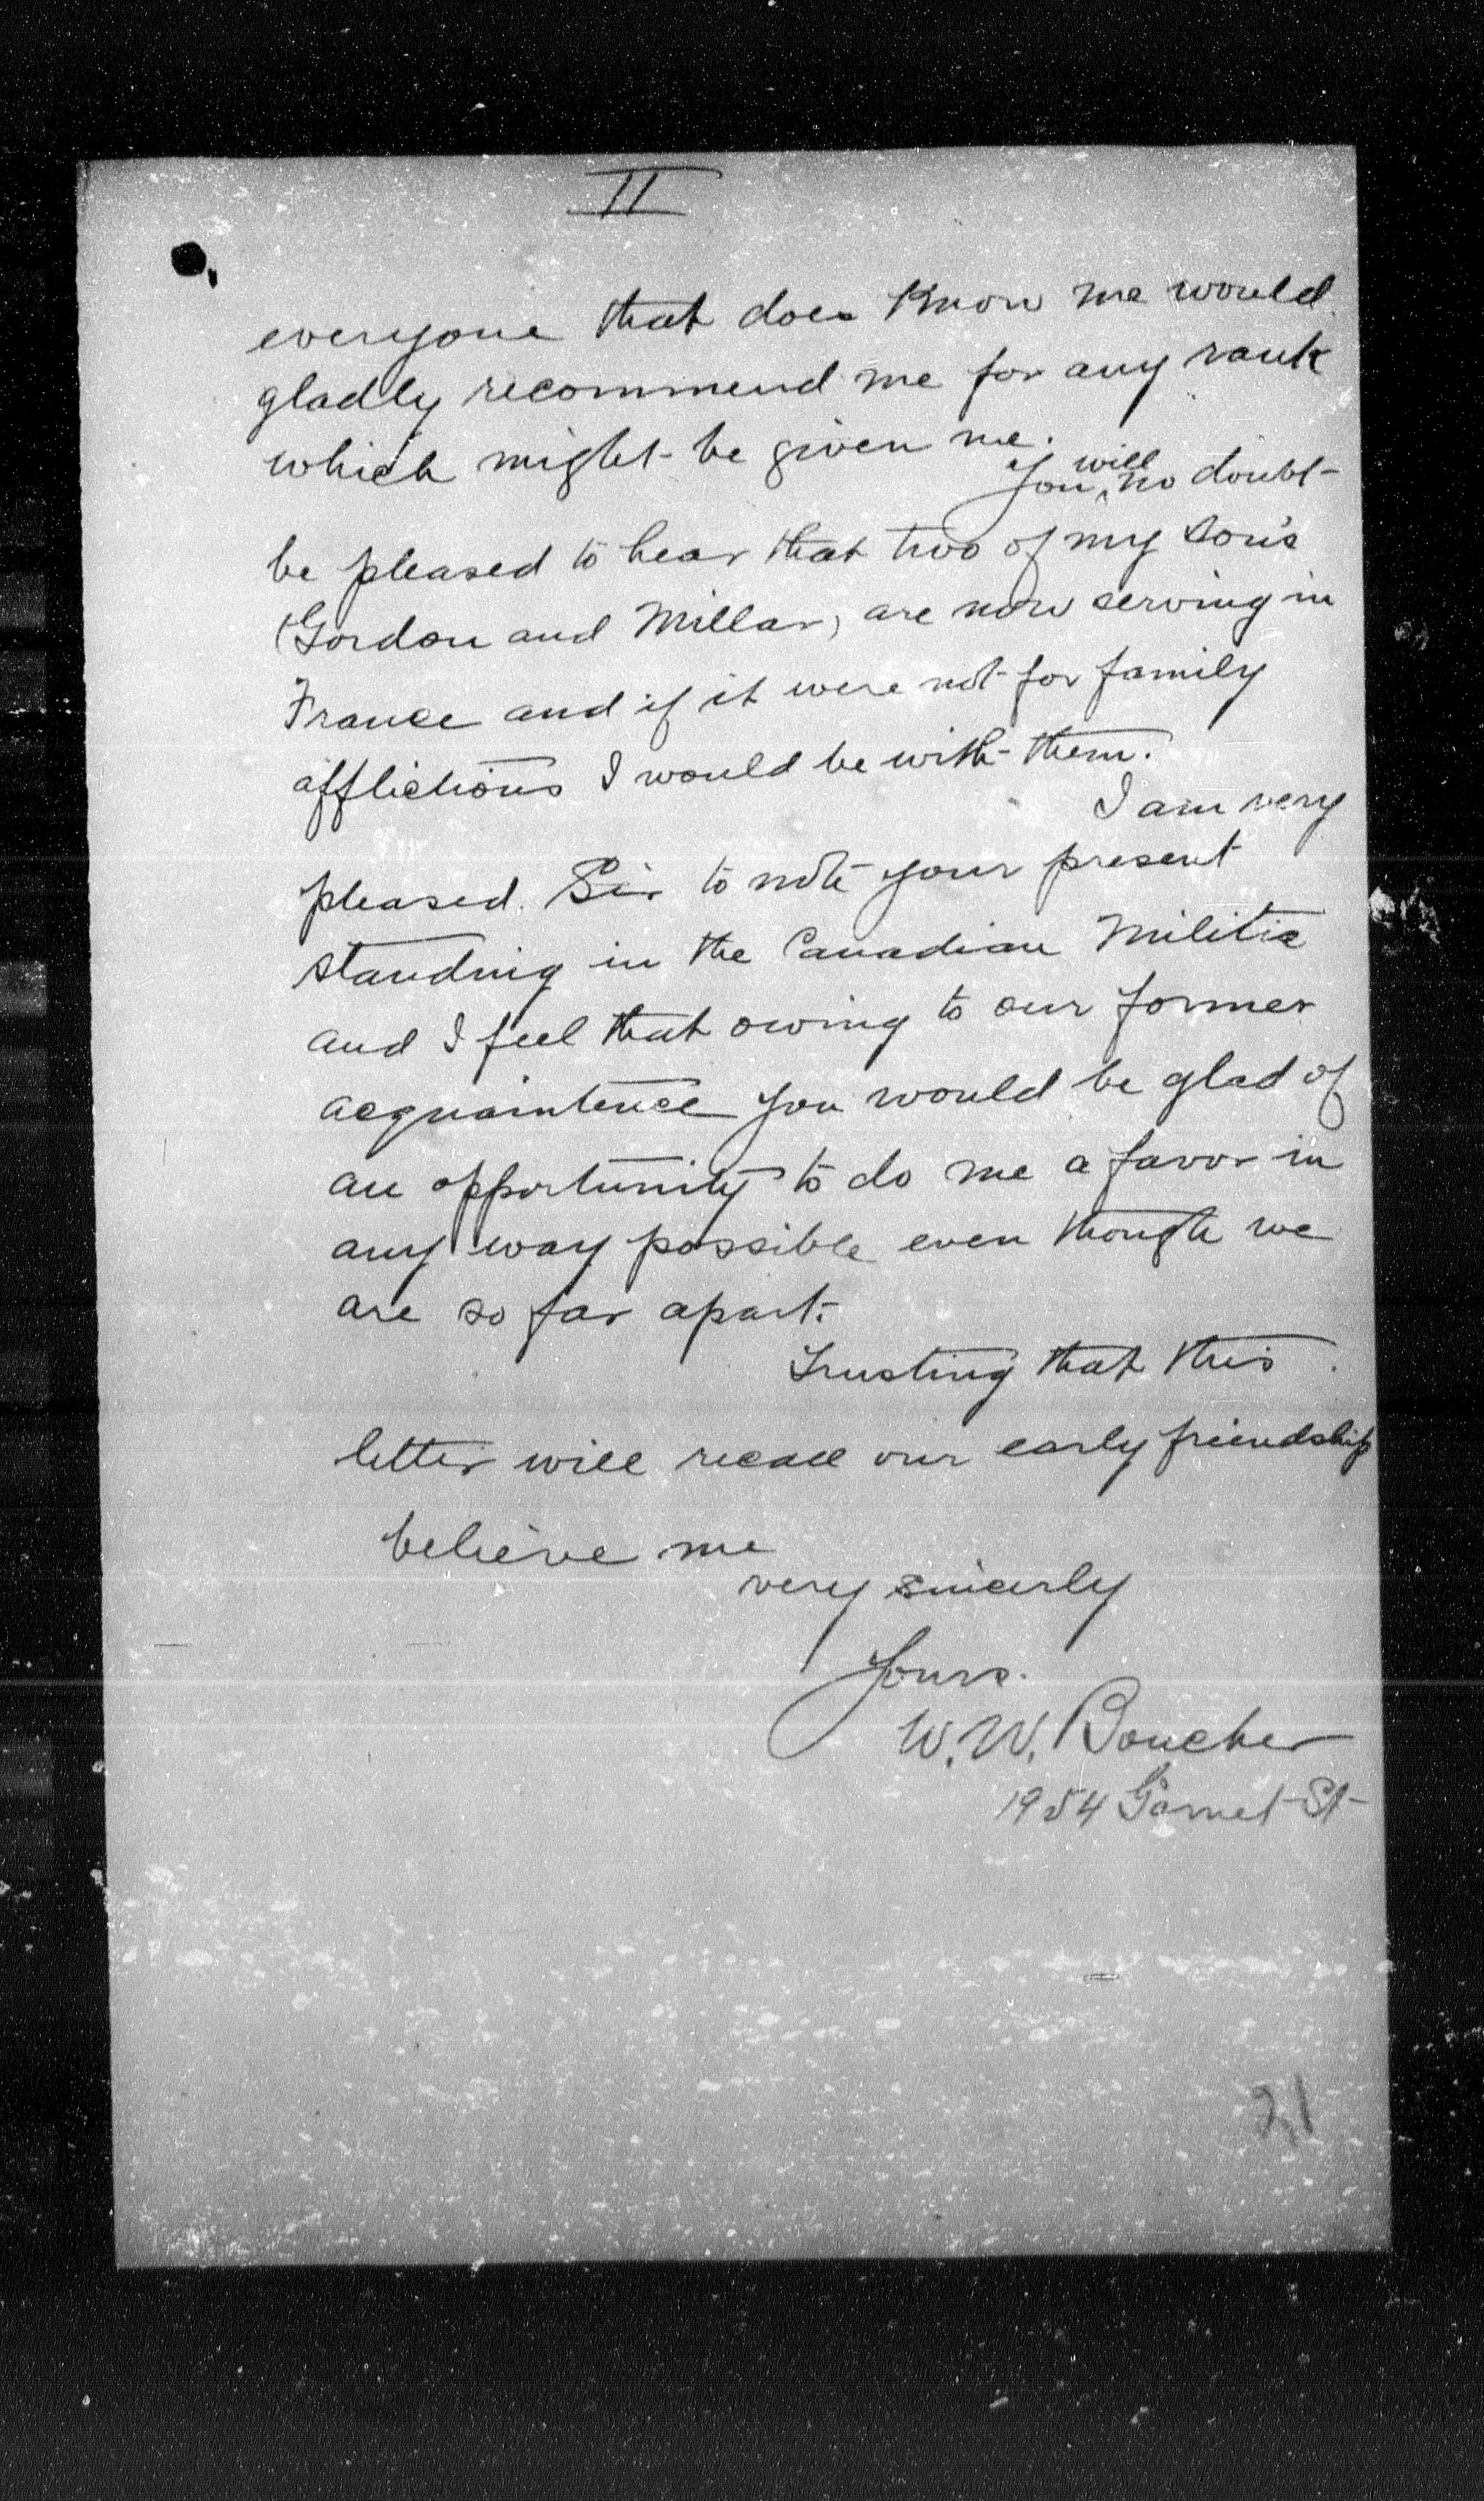 II
everyone that does know me would
gladly recommend me for any rank
which might be given me.
You will no doubt
be pleased to hear that two of my son's
(Gordon and Millar) are now serving in
France and if it were not for family
afflictions I would be with them.
I am very
pleased Sir to note your present
standing in the Canadian Militia
and I feel that owing to our former
acquaintence you would be glad of
an opportunity to do me a favor in
any way possible even though we
are so far apart.
Trusting that this
letter will recall our early friendship
believe me
very sincerly
Yours.
W. W. Boucher
1954 Garnet St
21